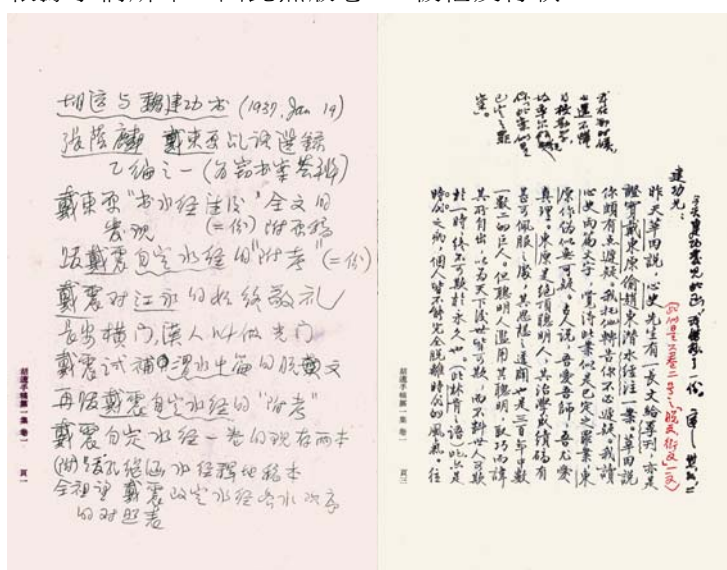 胡適与魏建功书 (1937. Jan 19)
張蔭麟 戴東原乱诗選錄
乙编之一
戴東原“书水经注後”全文的
发现 (=份) 附原稿
跋戴震自定水经的“附考”(=份)
戴震对江永的始终敬礼
長安横门,漢人叫做光门
戴震试補渭水中篇的脱文
再跋戴震自定水经的“附考”
戴震自定水经一卷的现在兩本
(附)孔继涵水经释地稿本
全祖望戴震改定水经各水次序
的对照表
胡適手稿第一集 卷一 頁一
建功兄:
昨天草田說,心史先生有一長文給季刊,亦是
證實戴東原偷趙東潛水经注一案。草田說
你頗有点遲疑。我托他轉告你不必遲疑。我讀
心史兩篇文字,覺得此案似是已定之罪案,東
原作偽似無可疑。古人說,吾愛吾師,吾尤愛
真理。東原是絕頂聰明人,其治學成績確有
甚可佩服之處,其思想之透闢也是三百年中數
一數二的巨人。但聰明人濫用其聰明,取巧而諱
其所自出,以為天下後世皆可欺,而不料世人可欺
於一時,終不可欺於永久也。
時代之病,個人皆不能完全脫離時代的風氣。往
胡適手稿第一集 卷一 頁三